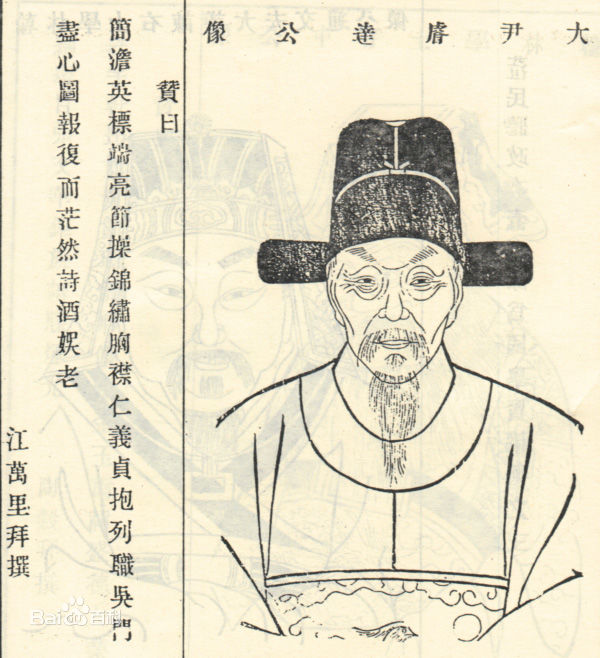 大尹膺達公像
贊曰
簡澹英標端亮節操錦繡胸襟仁義貞抱列職吳門
盡心圖報復而茫然詩酒娛老
江萬里拜撰
Baidu百科